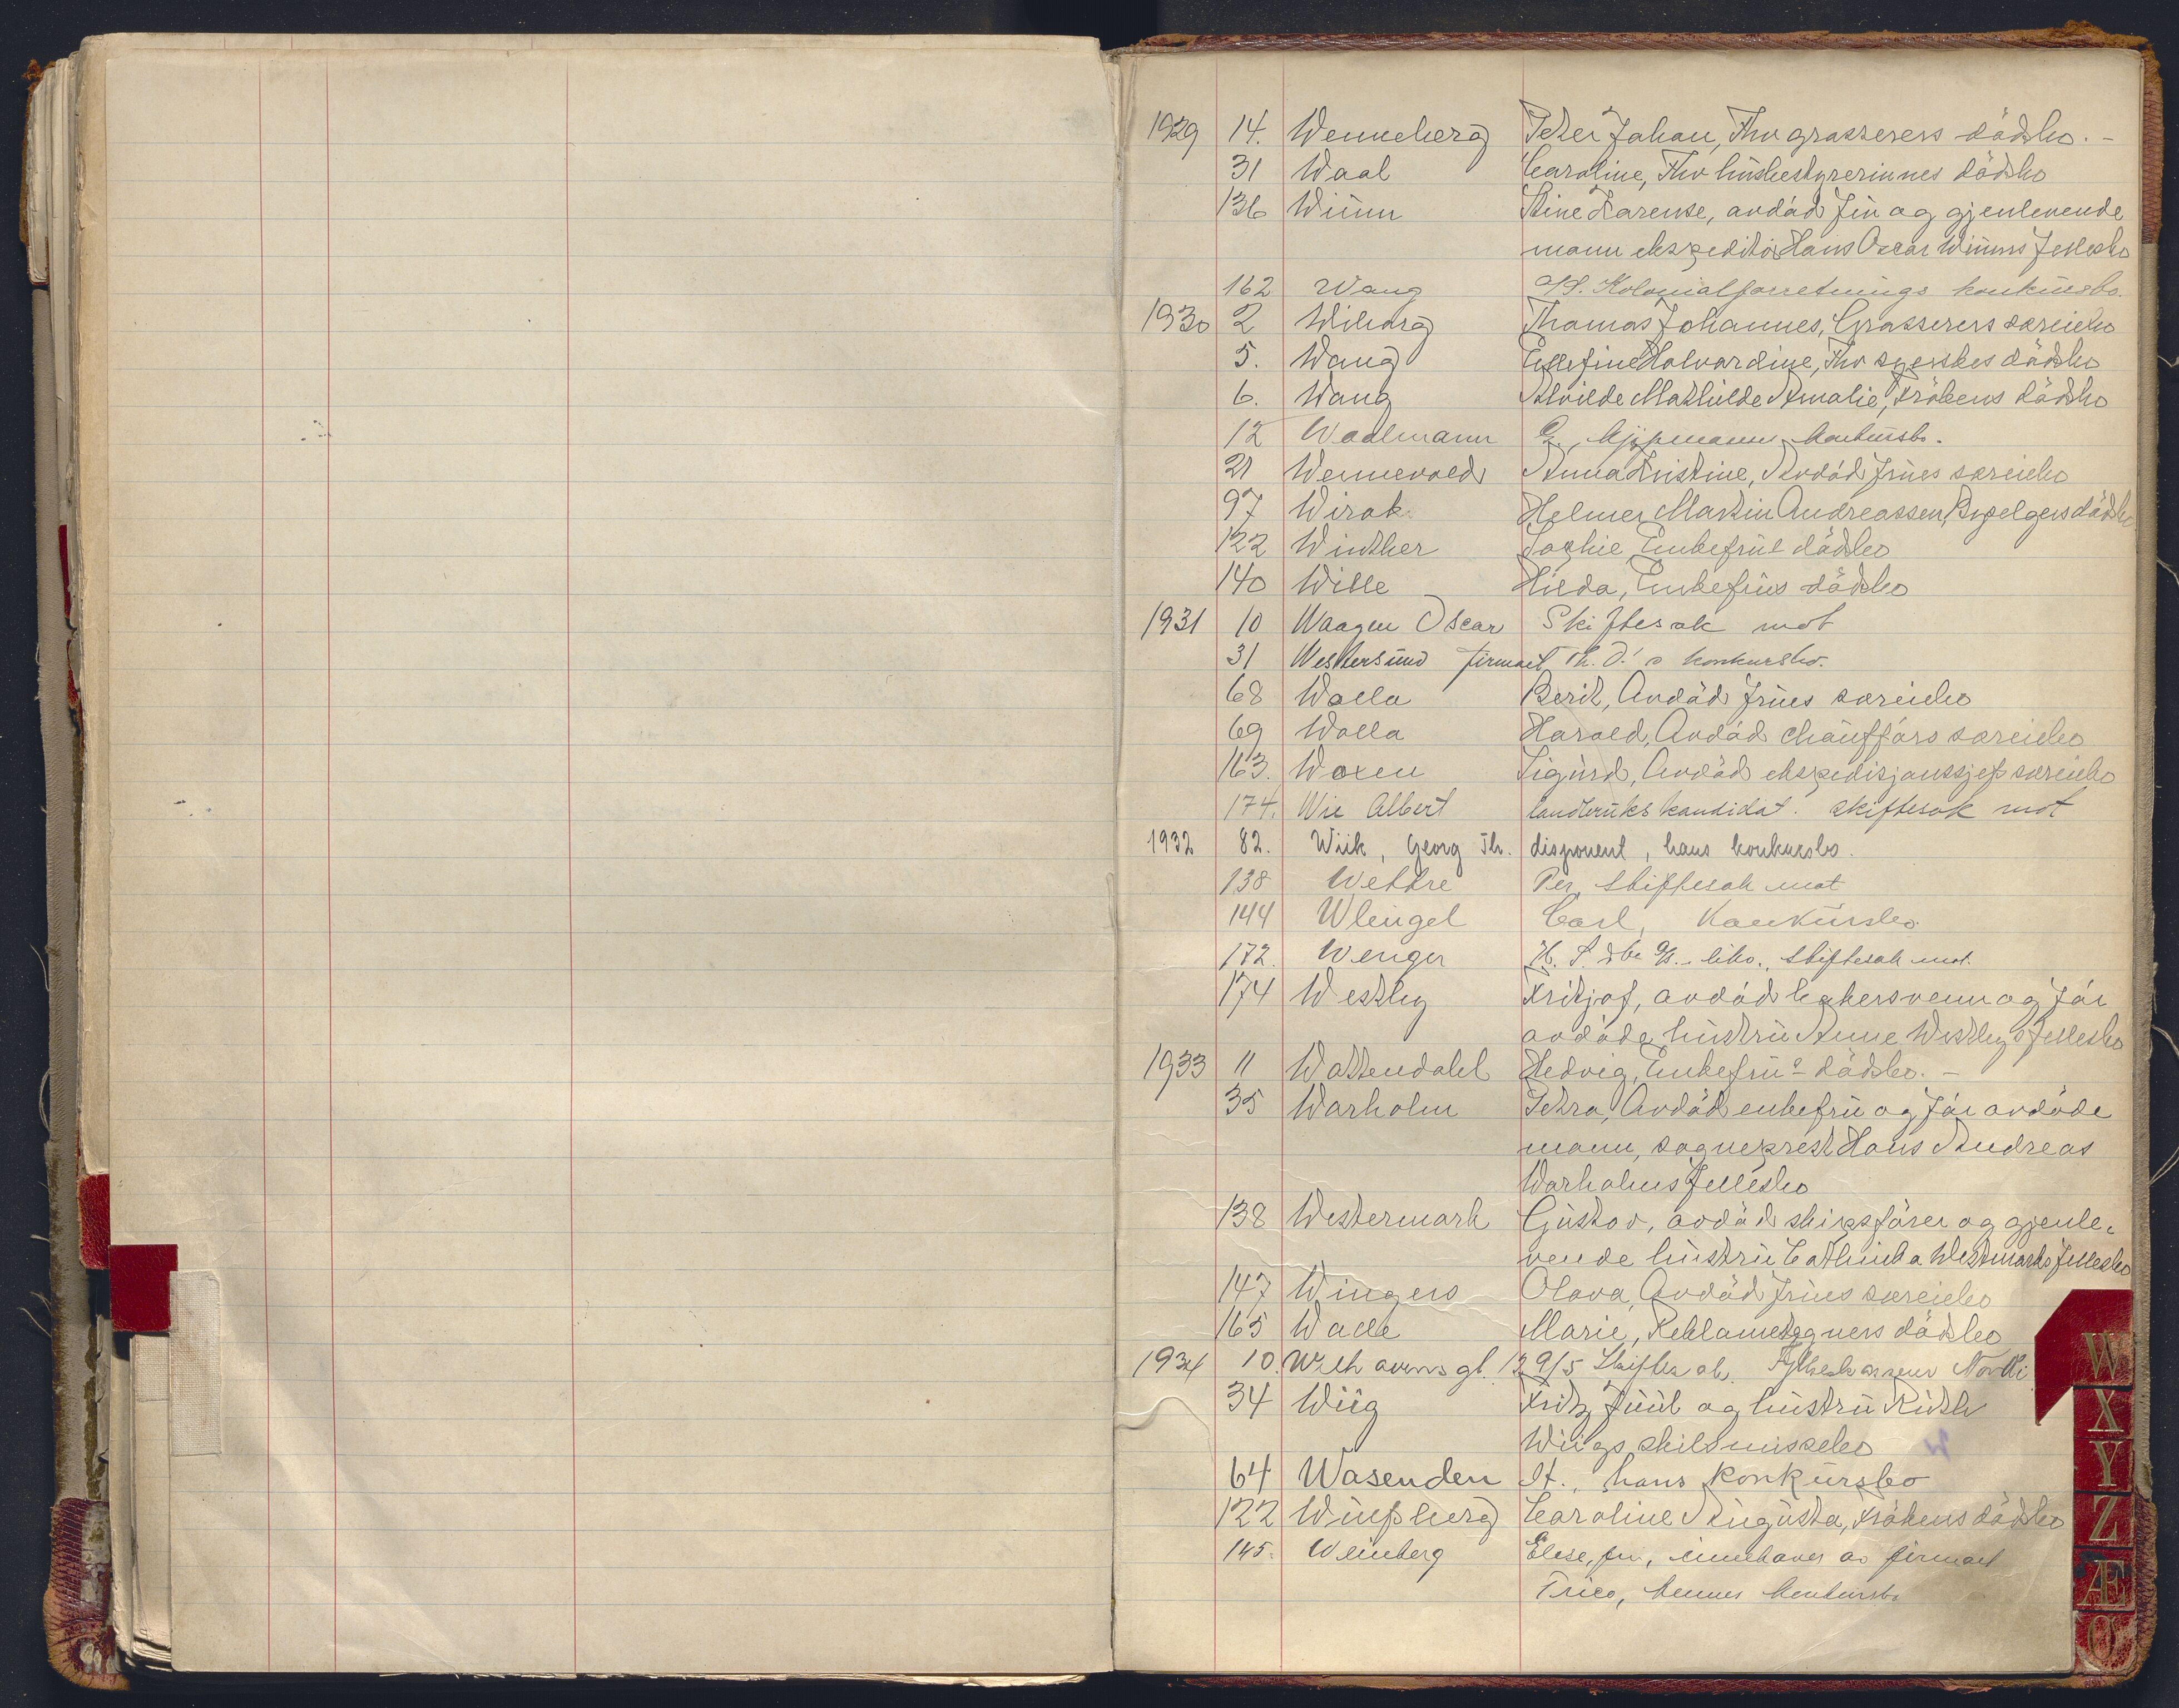 1929 14. Wenneberg Peter Johan, Fhv grosserers dödsbo. -
31 Waal Caroline, Fhv husbestyrerinnes dödsbo
136 Wium Stine Karense, avdöd fru og gjenlevende
mann ekspeditör Hans Oscar Wiums fellesbo
162 Wang A/S. Kolonialforretnings konkursbo.
1930 2 Wiborg Thomas Johannes, Grosserers særeiebo
5. Wang Ellefine Halvardine, Fhv syerskes dödsbo
6. Wang Alvilde Mathilde Amalie, Frökens dödsbo
12 Woelmann kjøpmanns konkursbo.
21 Wennevold Anna Kristine, Avdöd frues særeiebo
97 Wirak Helmer Martin Andreassen, Bryselgers dödsbo
122 Winther Sophie, Enkefrus dödsbo
140 Wille Hilda, Enkefrus dödsbo
1931 10 Waagen Oscar Skiftesak mot
31 Westersund firmaet Th. O.'s konkursbo.
68 Wolla Berit, Avdöd frues særeiebo
69 Wolla Harald, Avdöd chaufförs særeiebo
163. Woxen Sigurd, Avdöd ekspedisjonssjefs særeiebo
174. Wie Albert landbrukskandidat. skiftesak mot
1932 82. Wiik, Georg Th. disponent, hans konkursbo.
138 Wettre Per, skiftesak mot
144 Wleügel Carl, Konkursbo.
172. Wenger skiftesak mot.
174 Westby Fritjof, avdöd bakersvenn og för
avdöde hustru Anne Westbys fellesbo
1933 11 Wattendahl Hedvig, Enkefrus dödsbo. -
35 Warholm Petra, Avdöd enkefru og för avdöde
mann, sogneprest Hans Andreas
Warholms fellesbo
138 Westermark Gustav, avdöd skipsförer og gjenle-
vende hustru Cathinka Westmarks fellesbo
147 Wingers Olava, Avdöd frues særeiebo
165 Walle Marie, Reklametegners dödsbo
1934 10. Welhavensgt. 12 9/5 Skiftesak.
34 Wiig Fritz Juul og hustru Ruth
Wiigs skilsmissebo
64 Wasenden St., hans konkursbo
122 Wulfsberg Caroline Augusta, Frökens dödsbo
145. Weinberg Else, fru, innehaver av firmaet
Trico, hennes konkursbo
W
X
Y
Z
Æ
Ø